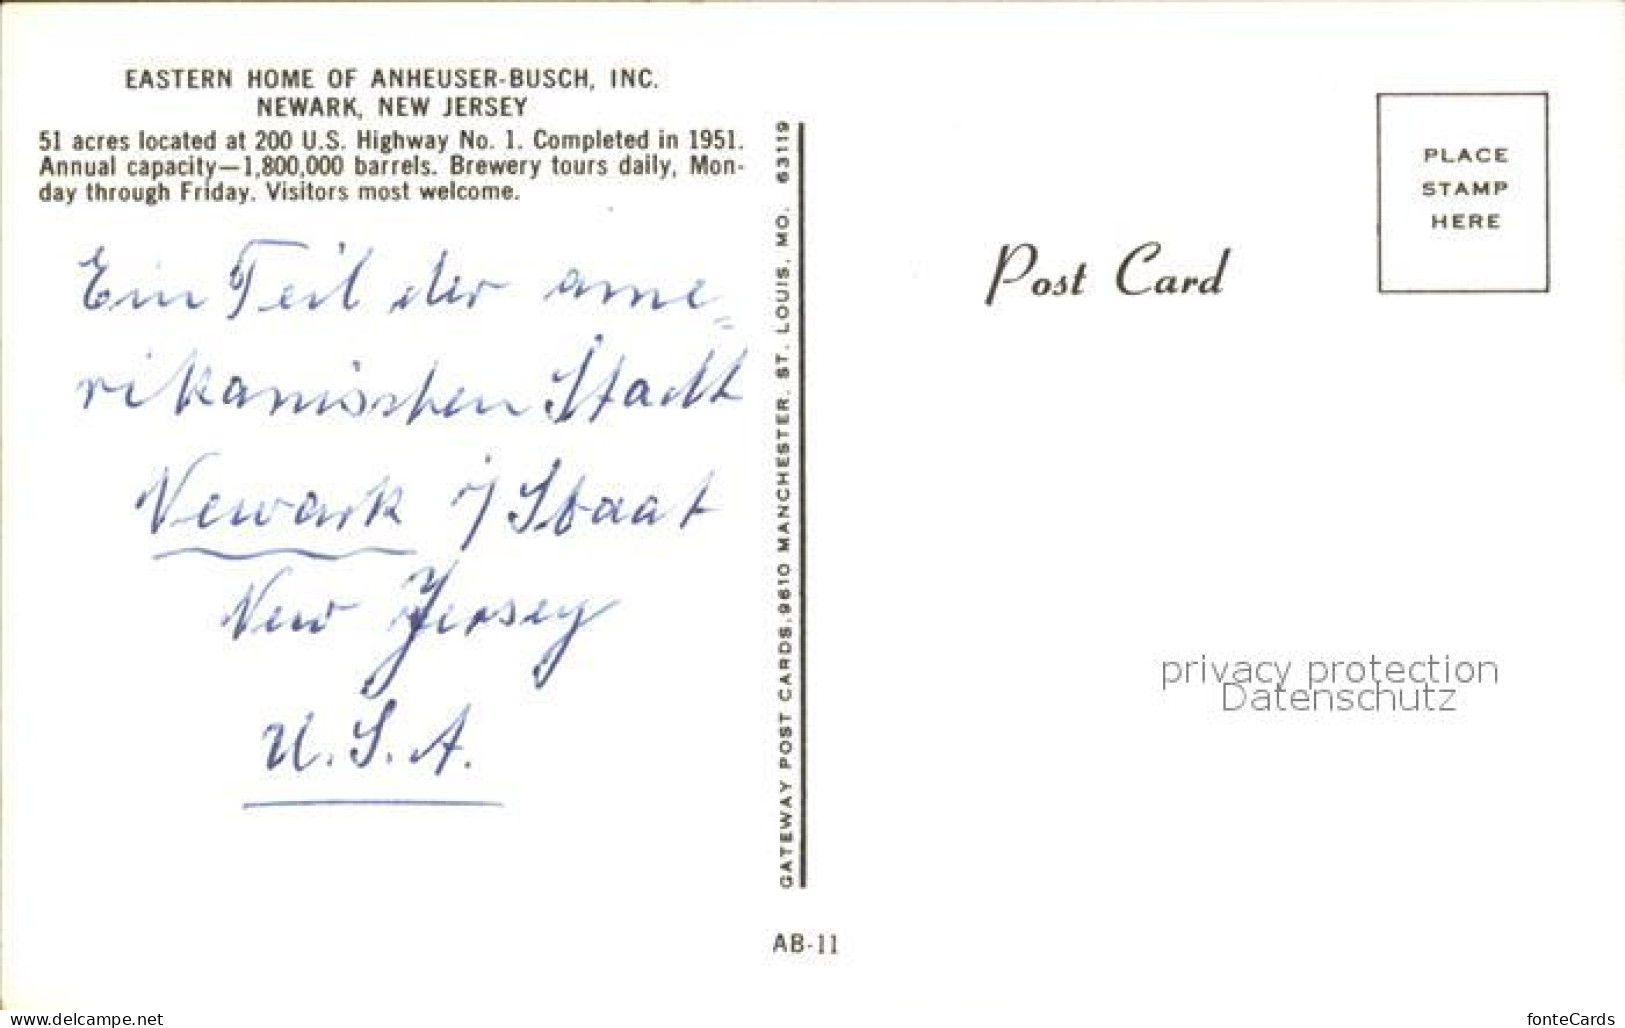 EASTERN HOME OF ANHEUSER-BUSCH, INC.
NEWARK, NEW JERSEY
51 acres located at 200 U.S. Highway No. 1. Completed in 1951.
Annual capacity—1,800,000 barrels. Brewery tours daily, Mon-
day through Friday. Visitors most welcome.
Ein Teil der ame=
rikanischen Stadt
Newark i/ Staat
New Jersey
U.S.A.
GATEWAY POST CARDS, 9610 MANCHESTER, ST. LOUIS, MO. 63119
AB-11
Post Card
PLACE
STAMP
HERE
privacy protection
Datenschutz
www.delcampe.net
fonteCards